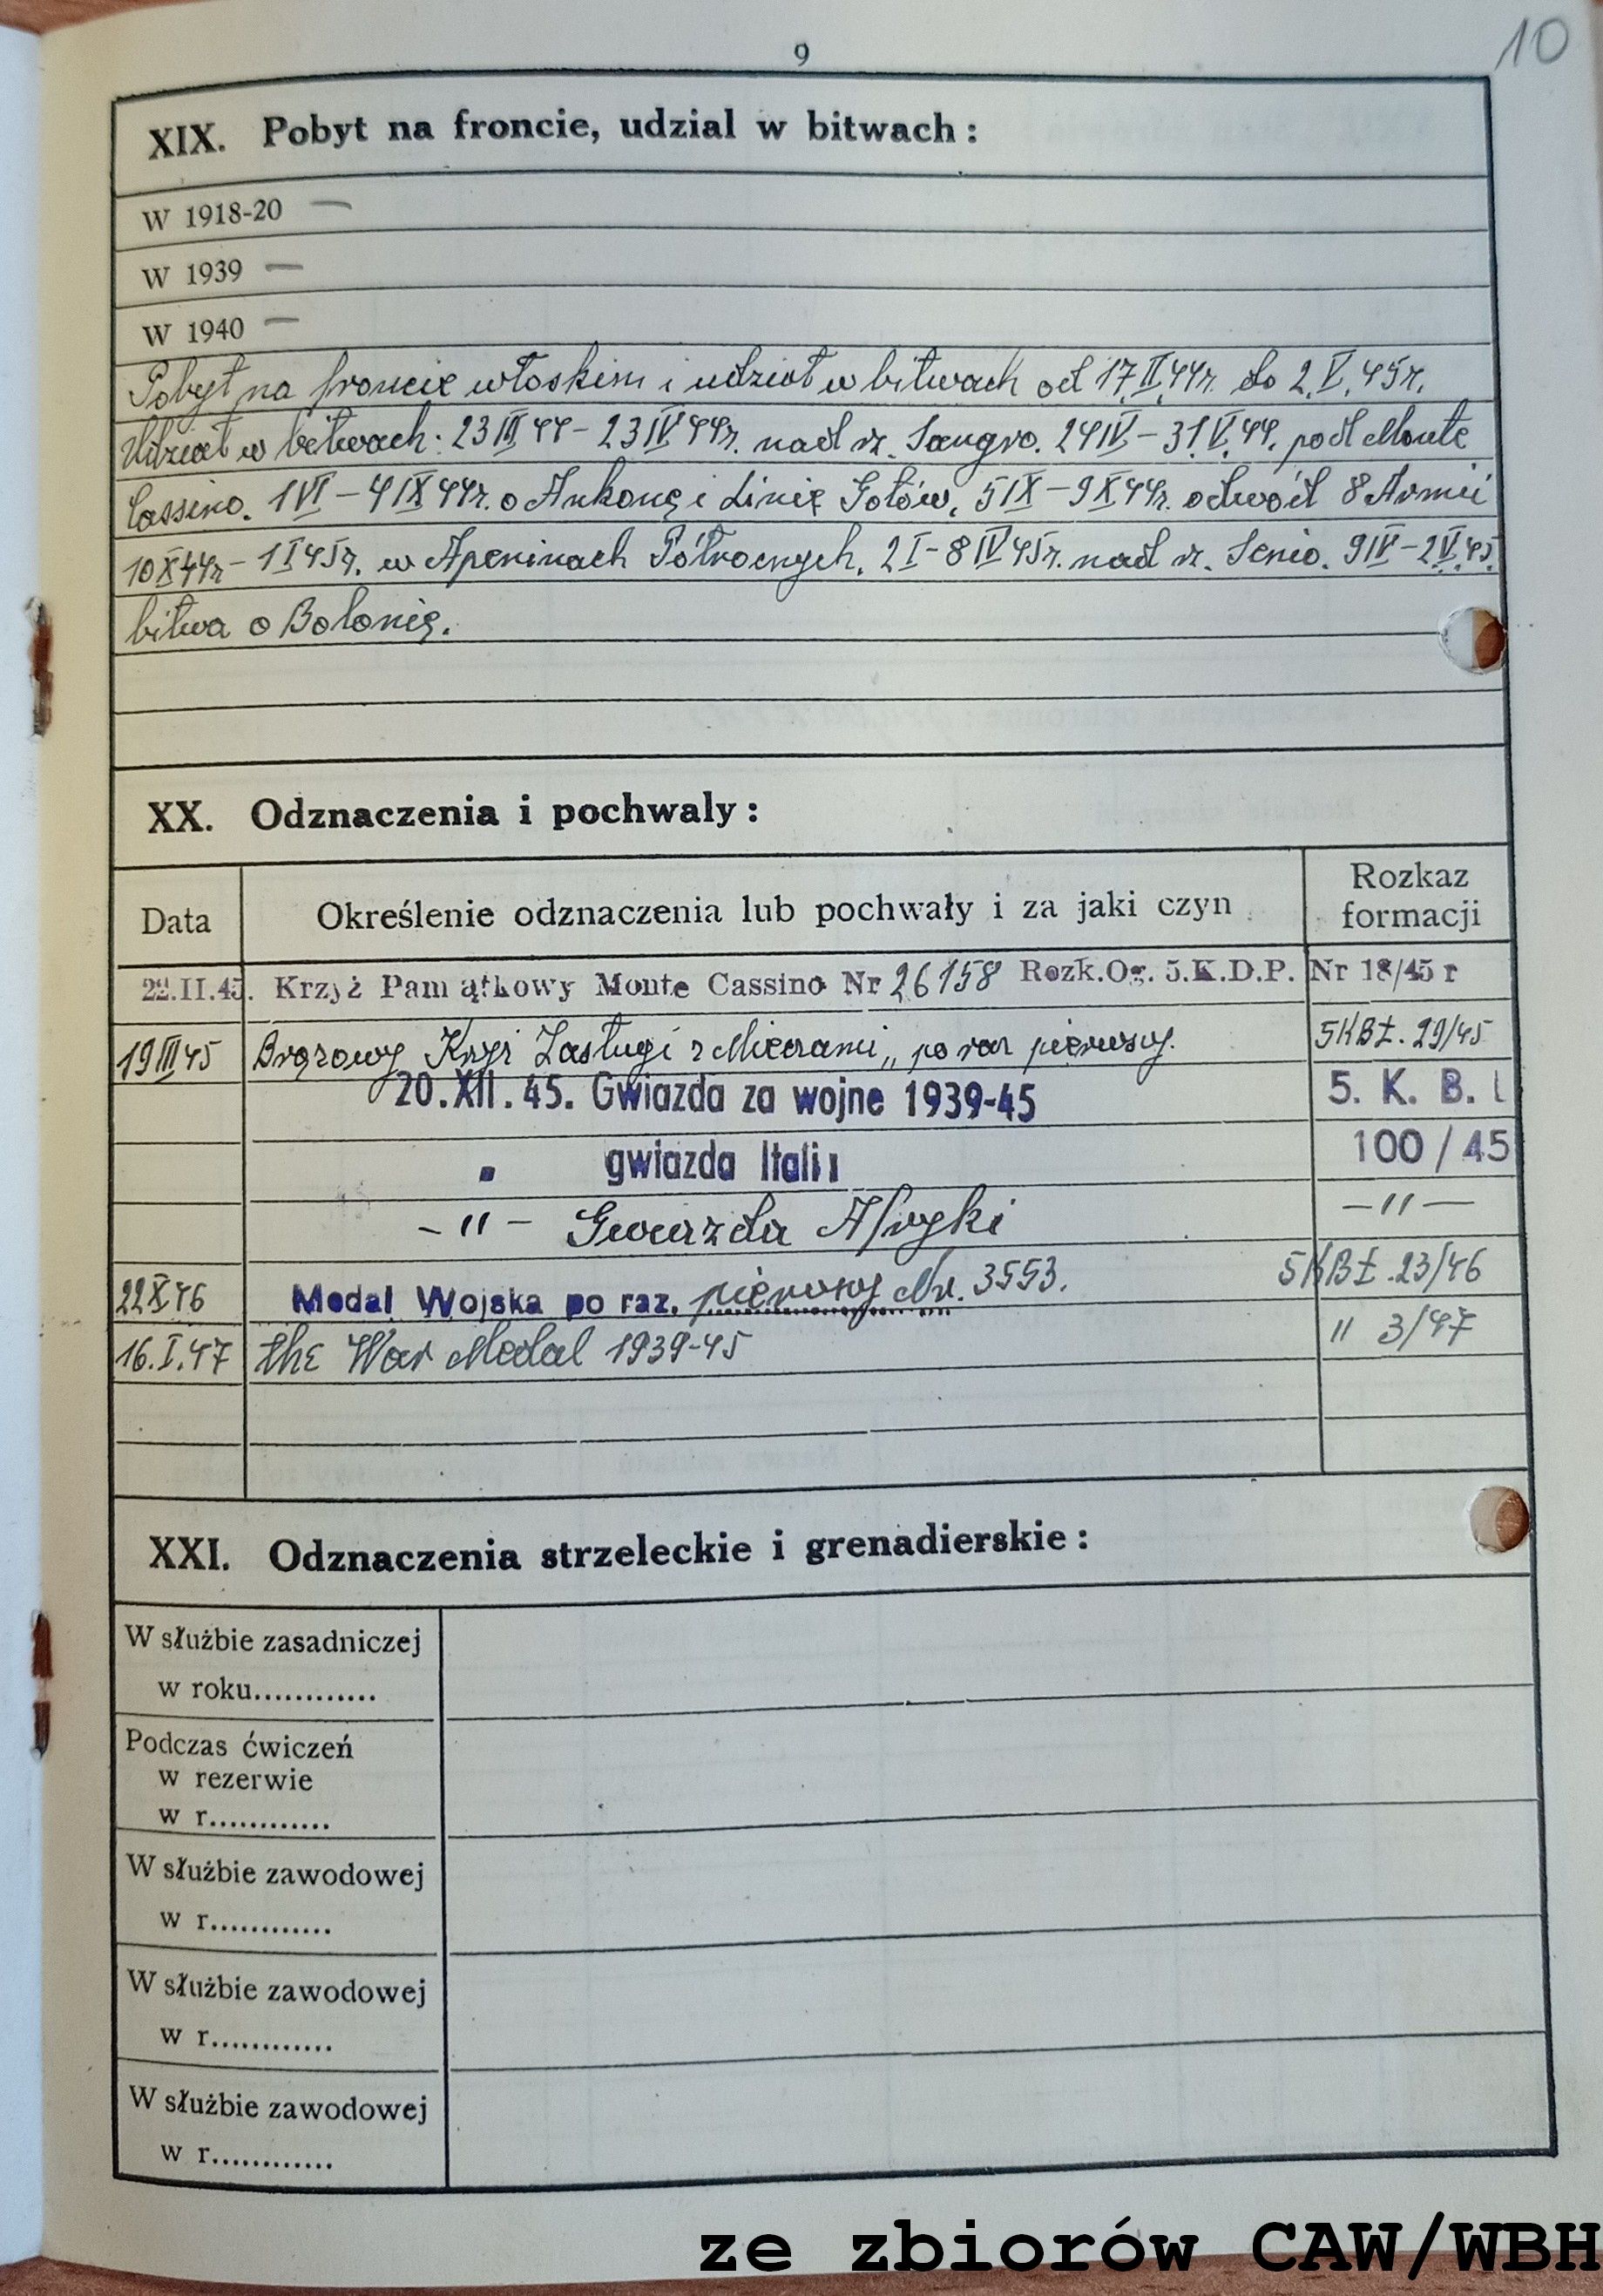 9
10
XIX. Pobyt na froncie, udzial w bitwach :
W 1918-20 —
W 1939 —
W 1940 —
Pobyt na froncie włoskim i udział w bitwach od 17.II.44r. do 2.V.45r.
Udział w bitwach: 23 III 44 - 23 IV 44r. nad rz. Sangro. 24 IV - 31.V.44. pod Monte
Cassino. 1 VI - 4 IX 44r. o Ankonę i Linię Gotów, 5 IX - 9 X 44r. odwód 8 Armii
10 X 44r - 1 I 45r. w Apeninach Północnych. 2 I - 8 IV 45r. nad rz. Senio. 9 IV - 2 V.45.
bitwa o Bolonię.
XX. Odznaczenia i pochwaly :
Data
Określenie odznaczenia lub pochwały i za jaki czyn
Rozkaz
formacji
22.II.45. Krzyż Pamiątkowy Monte Cassino Nr 26158 Rozk.Og. 5.K.D.P. Nr 18/45 r
19 III 45 Brązowy Krzyż Zasługi z Mieczami „ po raz pierwszy. 5 KBŁ. 29/45
20.XII.45. Gwiazda za wojne 1939-45 5. K. B. Ł
" gwiazda Italii 100/45
— " — Gwiazda Afryki — " —
22 X 46 Medal Wojska po raz. pierwszy Nr. 3553. 5 KBŁ. 23/46
16.I.47 the War Medal 1939-45 " 3/47
XXI. Odznaczenia strzeleckie i grenadierskie :
W służbie zasadniczej
w roku............
Podczas ćwiczeń
w rezerwie
w r............
W służbie zawodowej
w r............
W służbie zawodowej
w r............
W służbie zawodowej
w r............
ze zbiorów CAW/WBH